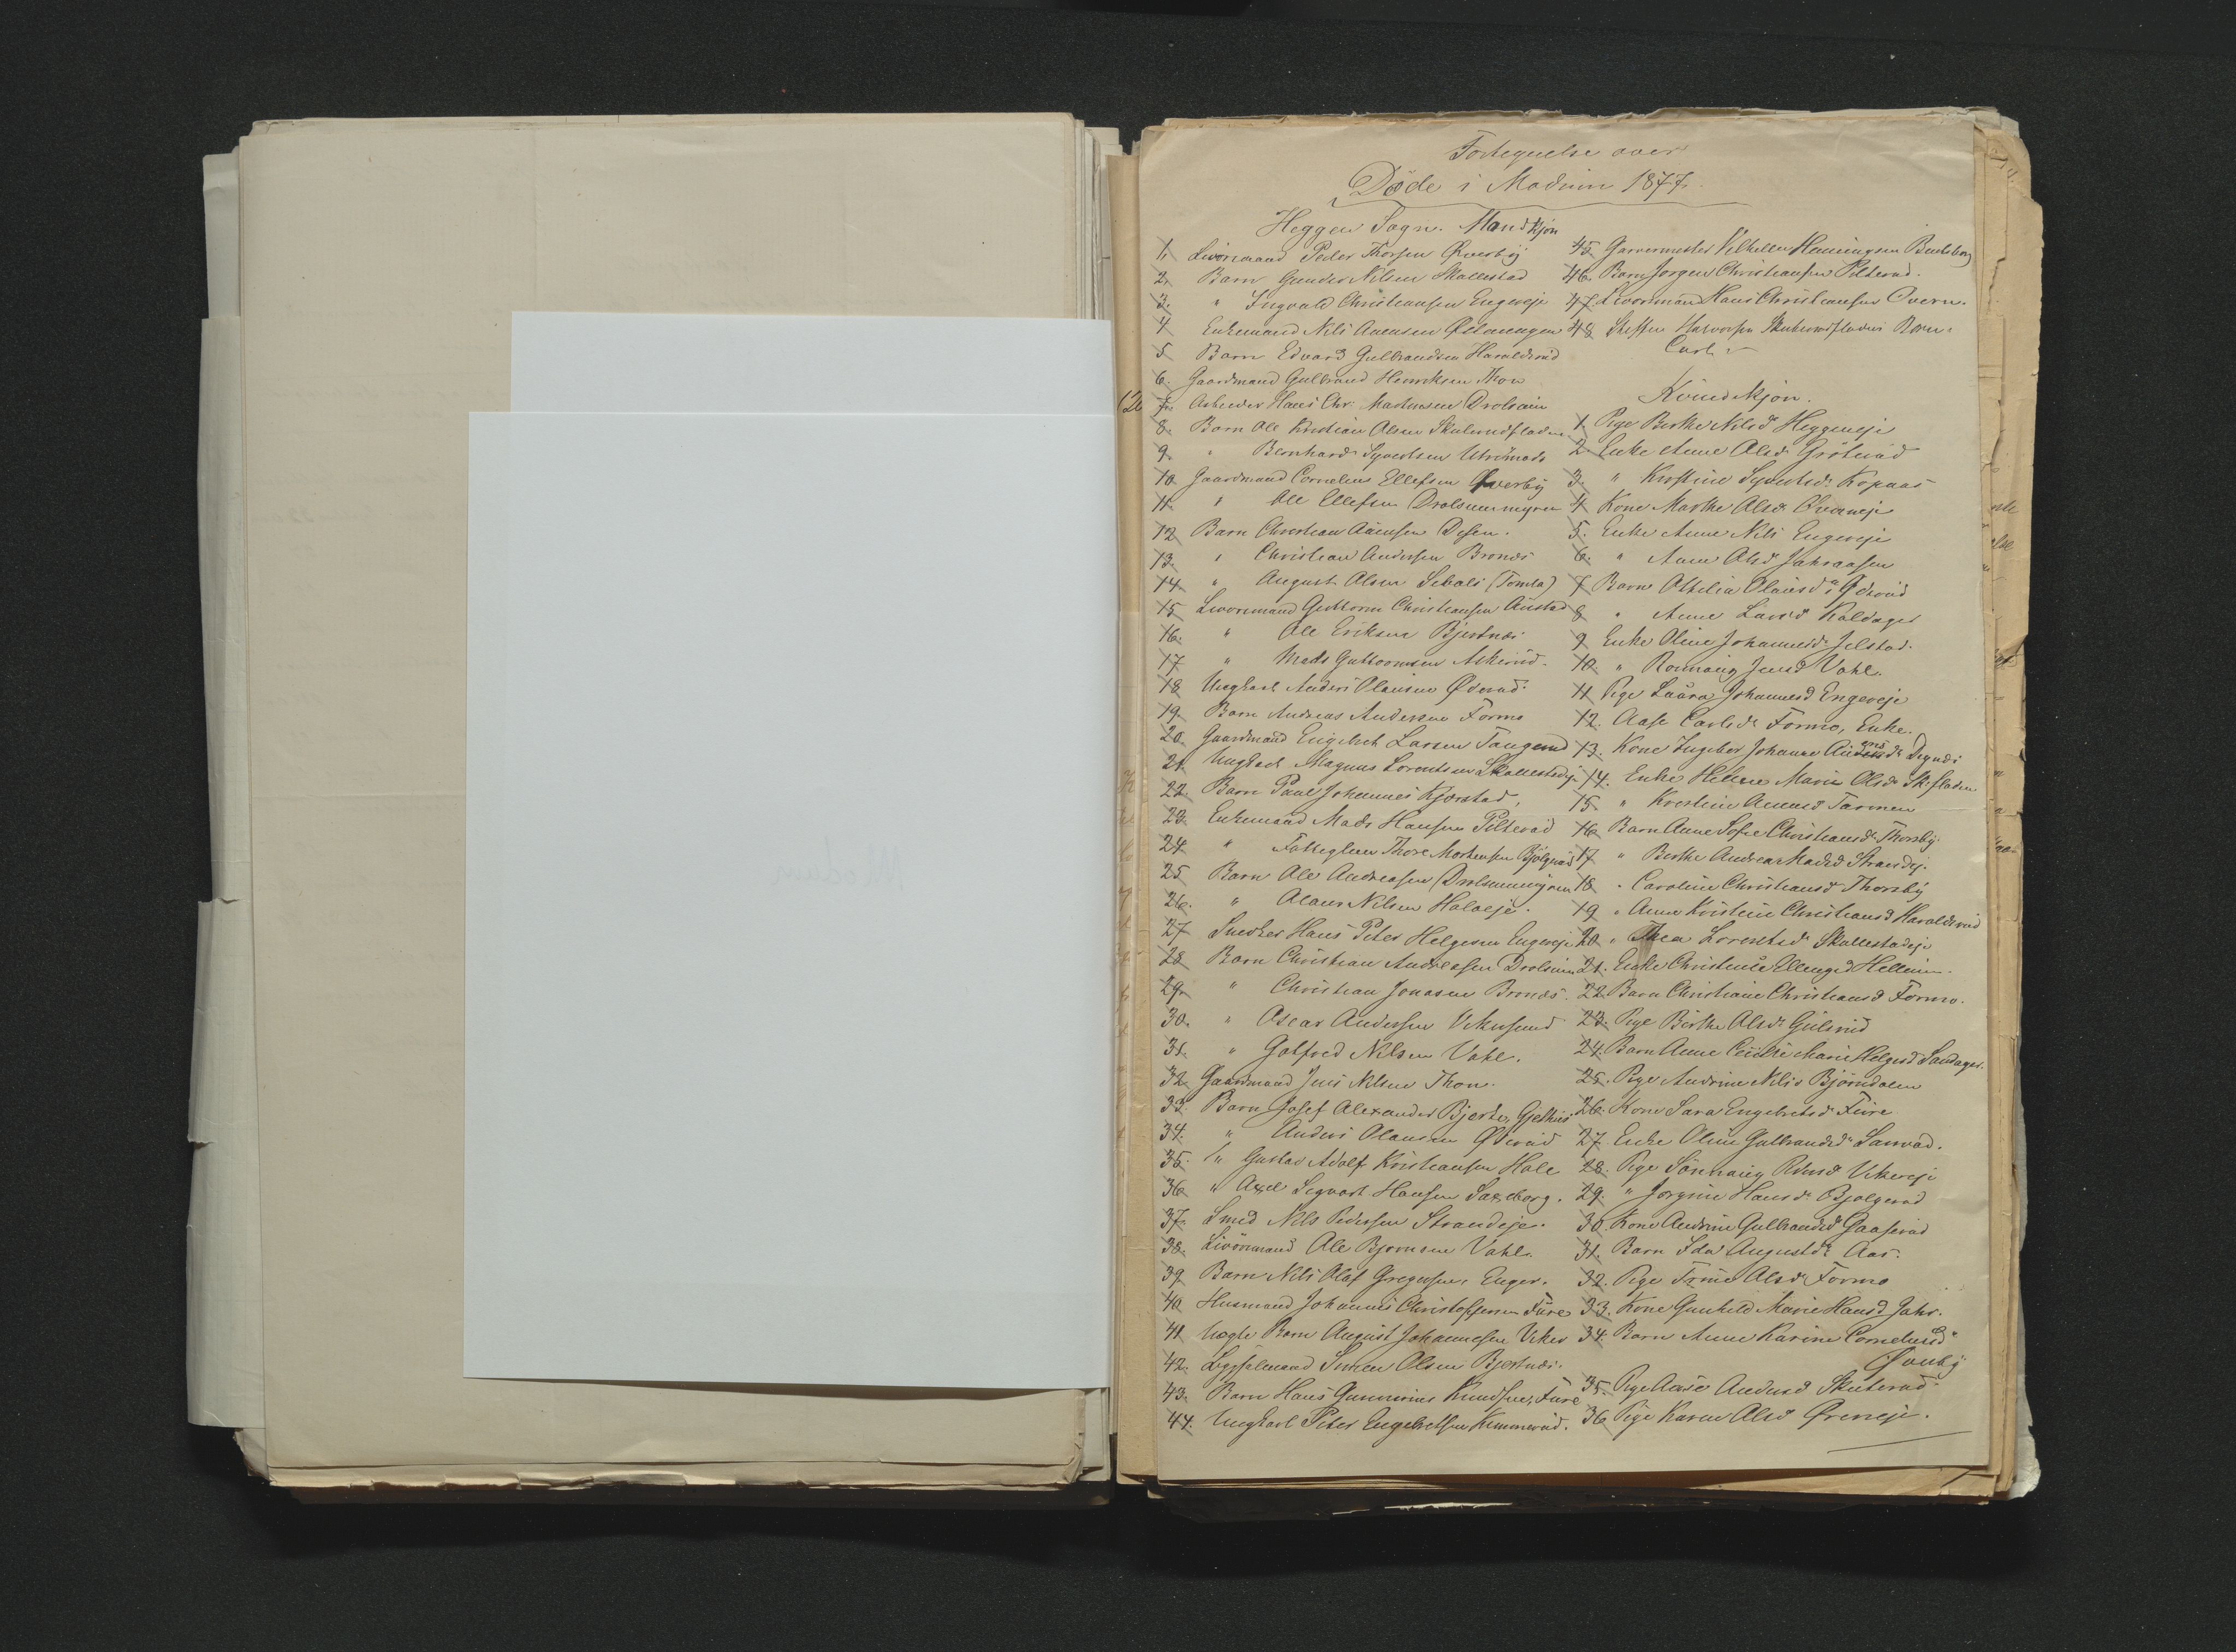 Fortegnelse over
Døde i Modum 1877.
Heggen Sogn. Mandkjøn
1. Livøremand Peder Thorsen Øverby
2. Barn Gunder Nilsen Skallestad
3. " Ingvald Christiansen Engereje
4 Enkemand Nils Amensen
5 Barn Edvard Gulbrandsen Haraldsrud
6. Gaardmand Gulbrand Henriksen Thon
7. Arbeider Hans Chr. Martinsen Drolsum
8. Barn Ole Kristian Olsen Skuterudfladen
9. " Bernhard Syvertsen
10. Gaardmand Cornelius Ellefsen Øverby
11. " Ole Ellefsen Drolsummyren
12 Barn Christian Desen.
13. " Christian Andersen Bronæs
14. " August Olsen (Tomta)
15 Livøremand Guttorm Christiansen
16. " Ole Eriksen Bjertnæs
17 " Mads Guttormsen Askerud.
18 Ungkarl Anders Olausen Øderud.
19. Barn Andreas Andersen Formo
20. Gaardmand Engebret Larsen Tangerud
21. Ungkarl Magnus Lorentsen Skallestadeje
22. Barn Paul Johannes Kjørstad,
23. Enkemand Mads Hansen Pilterud
24. " Fattiglem Thore Mortensen Bjølgerud
25 Barn Ole Andreasen Drolsummyren
26. " Olaus Nilsen Holeeje.
27 Snedker Hans Peter Helgesen Engereje
28 Barn Christian Andreasen Drolsum
29. " Christian Jonasen Bronæs.
30. " Oscar Andersen Vikersund
31. " Gotfred Nilsen Vahl.
32. Gaardmand Jens Nilsen Thon.
33. Barn Josef Alexander Bjerke, Gjethus
34. " Anders Olausen Øderud
35. " Gustav Adolf Kristiansen Hole
36 " Axel Segvart Hansen Saxeborg.
37. Smed Nils Pedersen Strandeje.
38. Livøremand Ole Bjørnsen Vahl.
39 Barn Nils Olaf Gregersen, Enger.
40 Husmand Johannes Christoffersen Fure
41 Uægte Barn August Johannesen Viker
42. Simen Olsen Bjertnæs.
43. Barn Hans Gunerius Knudsen, Fure
44. Ungkarl Peter Engebretsen Kimmerud.
45 Garvermester Henningsen
46. Barn Jørgen Christiansen Pilterud.
47. Livøremand Hans Christiansen Overn.
48 Steffen Halvorsen Skuterudfladens Barn
Carl
Kvindekjøn.
1. Pige Berthe Nilsd Heggeneje
2. Enke Anne Olsd
3. " Kirstine Syvertsd. Kopaas
4 Kone Marthe Olsd.
5. Enke Anne Nils Engereje
6. " Anne Olsd
7 Barn Othelia Olausd. Øderud
8 " Anne Larsd Kaldager
9 Enke Oline Johannesd. Jelstad.
10. " Ronnaug Jensd Vahl.
11 Pige Laura Johannesd Engereje
12. Aase Carlsd. Formo, Enke.
13. Kone Ingebor Johanne
14. Enke Helene Marie Olsd. Sk.fladen
15. " Kristine
16. Barn Anne Sofie Christiansd. Thorsby.
17 " Berthe Andrea Madsd Strandeje.
18 " Caroline Christiansd Thorsby
19 " Anne Kristine Christiansd Haraldsrud
20. " Thea Lorentsd. Skallestadeje
21. Enke Christense Hellum.
22. Barn Christiane Christiansd Formo.
23. Pige Birthe Olsd. Gulsrud
24. Barn Anne Marie Helgesd Sandager.
25. Pige Andrine Nils Bjørndalen
26. Kone Sara Engebretsd. Fure
27. Enke Oline Gulbrandsd.
28. Pige Vikereje
29. " Jørgine Hansd. Bjølgerud
30. Kone Andrine Gulbrandsd Gaaserud
31. Barn Ida Augustd. Aas.
32. Pige Trine Olsd. Formo
33. Kone Gunhild Marie Hansd. Jahr.
34. Barn Anne Karine Corneliusd
Øverby
35. Pige Aase Skuterud.
36. Pige Karen Olsd Øreneje.